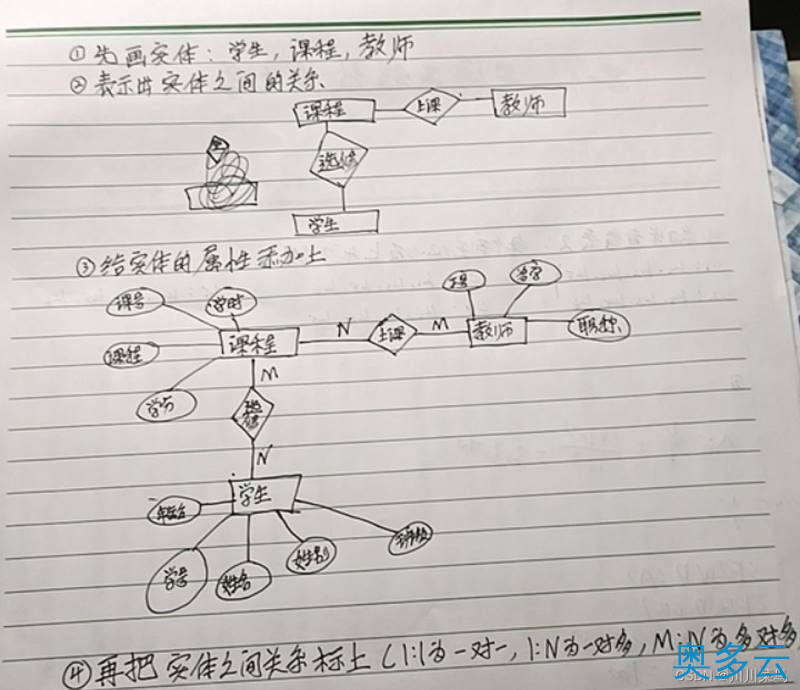 ①先画实体：学生，课程，教师
②表示出实体之间的关系
课程 上课 教师
选修
学生
③给实体的属性添加上
课号 学时
课程 N 上课 M 教师
职称
课程
M
学分
N
学生
年龄
学号 姓名 性别 班级
④再把实体之间关系标上（1:1为一对一，1:N为一对多，M:N为多对多
奥多云